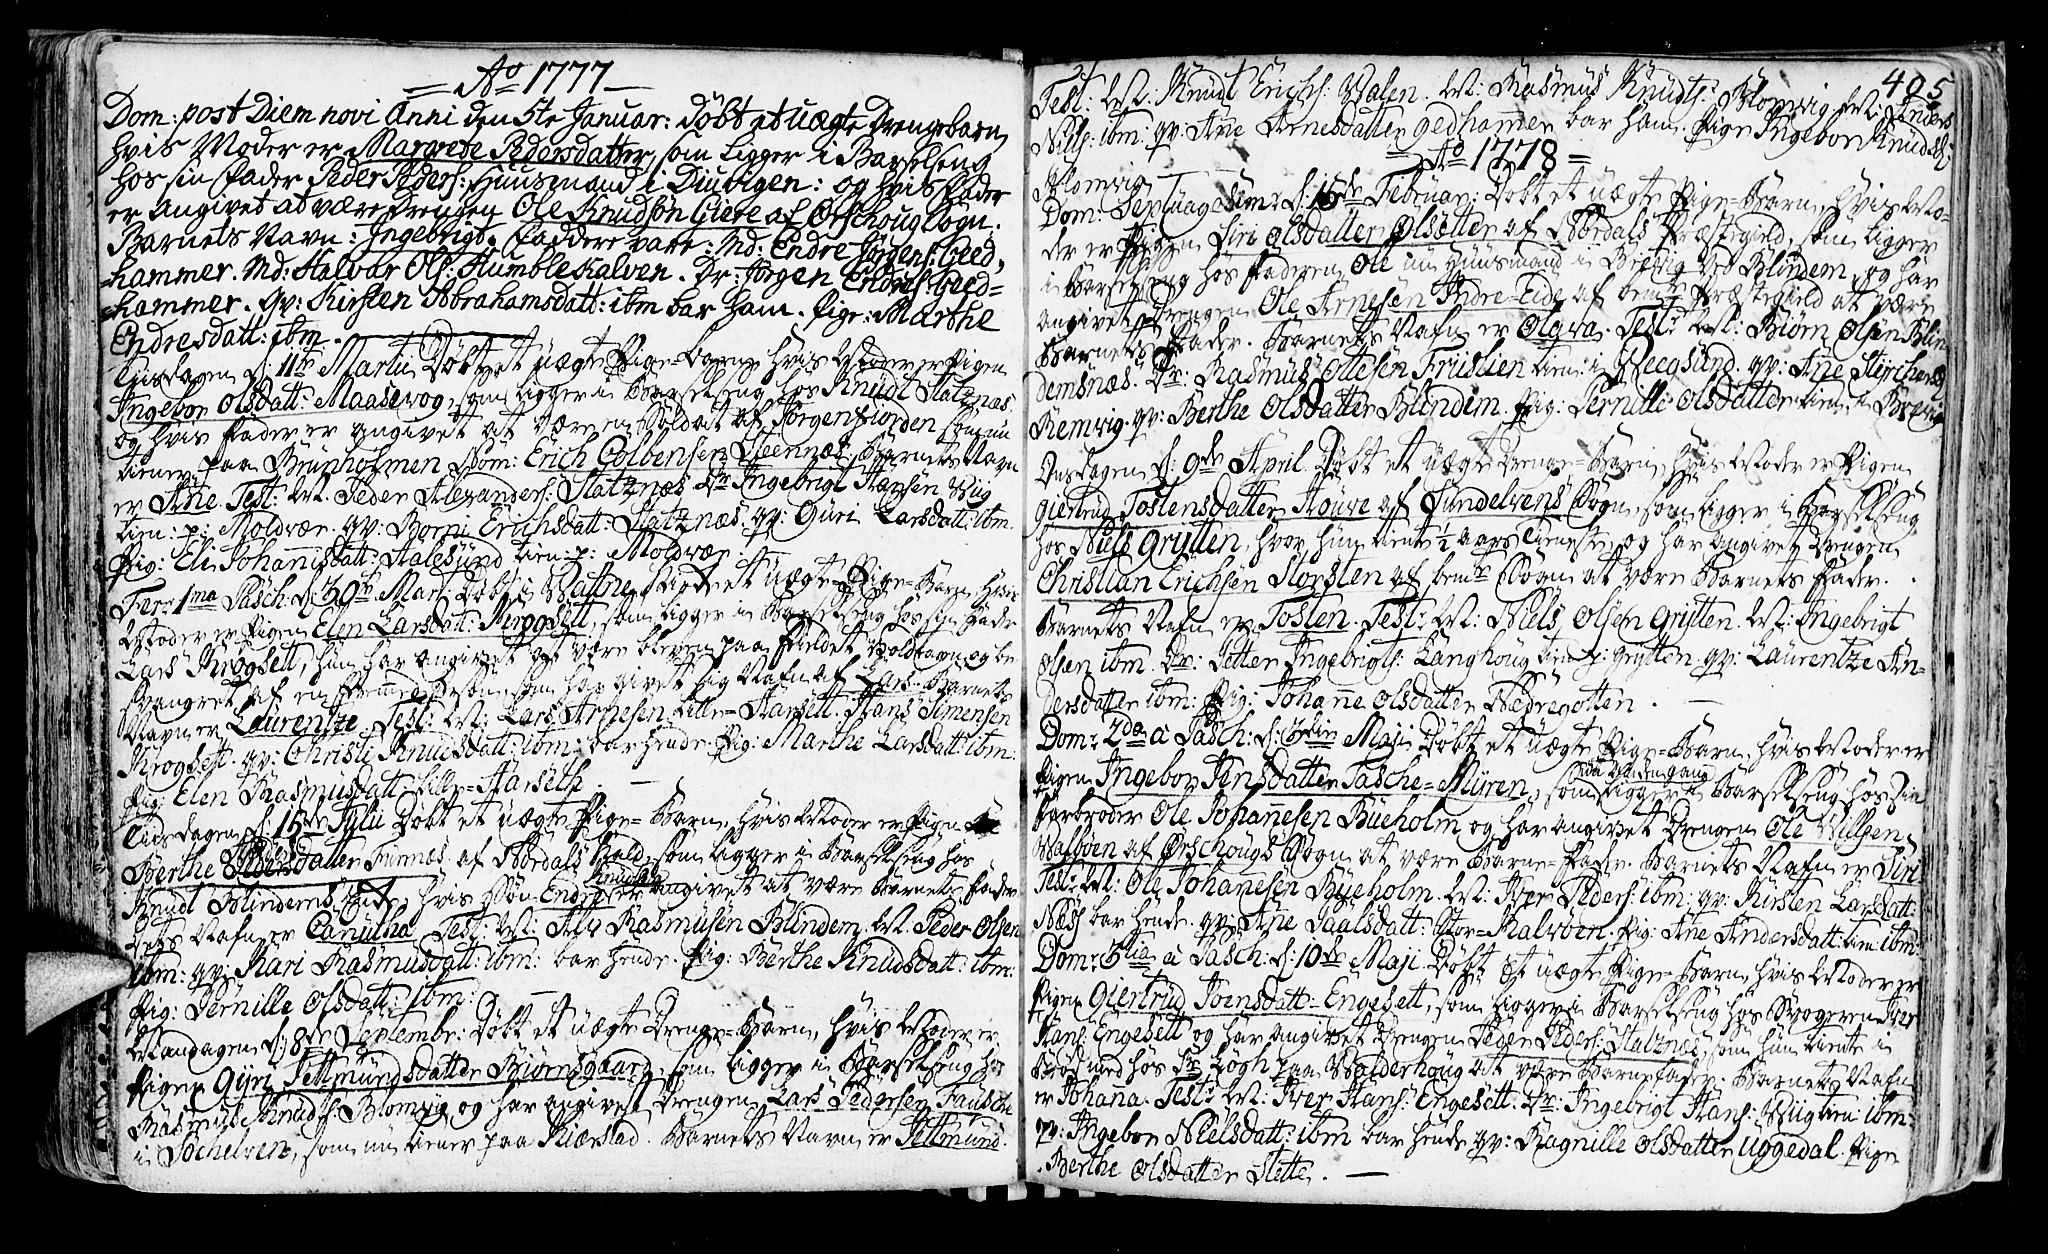 = Ao 1777 =
Dom: post Diem novi Anni den 5te Januar: Døbt et uægte Drengebarn
hvis Moder er Margrete Pedersdatter, som ligger i Barselseng
hos sin Fader Peder Peders: Huusmand i Diuvigen: og hvis Fader
er Angivet at være Drengen Ole Knudsøn Giere af Ørschoug Sogn.
Barnets Navn: Ingebrigt. Faddere vare: Md: Endre Jørgens: Geed,
=hammer. Md: Halvar Ols: Humblekalven. Dr: Jørgen Endres: Geed=
=hammer. qv: Kirsten Abrahamsdatt: ibm bar ham. Pige: Marthe
Endresdatt: ibm.
Tiisdagen d: 11te Martii Døbt et uægte Pige-Barn, hvis Moder er Pigen
Ingebor Olsdatt: Maasevog, som ligger i Barselseng hos Knudt Slatznæs
og hvis Fader er angivet at være en Soldat af Jørgenfiorden som nu
tiener paa Brunholmen Nom: Erich Colbensen Steennæs. Barnets Navn
er Ane. Test: Md. Peder Alexanders: Slatznæs Dr: Ingebrigt Hansen Viig
tien: p: Moldvær. qv: Borni Erichsdatt: Slatznæs. qv: Guri Larsdatt: ibm.
Pig: Eli Johannisdatt: Aalesund tien: p: Moldvær.
Fer: 1ma Pasch: d: 30te Mart: Døbt i Vattne Kirke et uægte Pige-Barn, hvis
Moder er Pigen Elen Larsdatt: Krogsett, som ligger i Barselseng hos sin Fader
Lars Krogsett, hun har angivet at være bleven paa Fieldet voldtagen og be
svangret af en fremmed Person, som har givet sig Nafn af Lars. Barnets
Navn er Laurentze. Test: Md: Lars Arnesen Lille-Harsett. Hans Simensen
Krogsett. qv: Christi Knudsdatt: ibm: bar hende. Pig: Marthe Larsdatt: ibm:
Pig: Elen Rasmusdatt: Lille-Harseth.
Tiisdagen d: 15de Julii Døbt et uægte Pige-Barn, hvis Moder er Pigen
Berthe Pedersdatter Furnæs af Nordals Gield, som ligger i Barselseng hos
Knud Blindems Enke, hvis Søn Endre Knudsøn er angivet at være Barnets Fader
dets Nafn er Canutha. Test: Md: Aly Rasmusen Blindem. Md: Peder Olsen
ibm: qv: Kari Rasmusdatt: ibm: bar hende. Pig: Berthe Knudsdatt: ibm:
Pig: Pernille Olsdatt: ibm:
Mandagen d: 8de Septembr: Døbt et uægte Drenge-Barn, hvis Moder er
Pigen Gyri Pettmundsdatter Biørnsgaard, som ligger i Barselseng hos
Rasmus Knuds: Blomvig og har angivet Drengen Lars Pedersen Fausche
i Søchelven, som nu tiener paa Kierstad. Barnets Navn er Pettmund.
405
Test: Md: Knud Erichs: Valen. Md: Rasmus Knuds: Blomvig Md: Anders
Nills: ibm: qv: Ane Arnesdatter gedhammer bar ham. Pige Ingebor Knudsd:
Blomvig
= Ao 1778 =
Dom: Septuagesim: d: 15de Februar: Døbt et uægte Pige-Barn, hvis Mo-
der er Pigen Siri Olsdatter Olsætter af Nordals Præstegield, som ligger
i Barselseng hos Faderen Ole nu Huusmand i Brevig ved Blindem, og har
angivet Drengen Ole Arnesen Indre-Eide af bemte Præstegield at være
Barnets Fader. Barnets Nafn er Olava. Test: Md: Biørn Olsen Blin
demsnæs. Dr: Rasmus Ottesen Friislien tien: i Veegsund. qv: Ane Styrchersd:
Remvig. qv: Berthe Olsdatter Blindem. Pig: Pernille Olsdatter tien: i Brevig
Onsdagen d: 9de April. Døbt et uægte Drenge-Barn, hvis Moder er Pigen
Giertrud Tostensdatter Houve af Sundelvens Sogn, som ligger i Barselseng
hos Niels Grytten, hvor hun tiente 1/2 aars Tieneste, og har angivet Drengen
Christian Erichsen Korsten af bemte Sogn at være Barnets Fader.
Barnets Nafn er Tosten. Test: Md: Niels Olsen Grytten. Md: Ingebrigt
Olsen ibm. Dr: Petter Ingebrigts: Langhoug tien: p: Grytten. qv: Laurentze An-
dersdatter ibm: Pig: Johanne Olsdatter Nædregotten.
Dom: 2da a Pasch: d: 3die Maji Døbt et uægte Pige-Barn, hvis Moder er
Pigen Ingebor Jensdatter Pasche-Myren, som ligger i Barselseng hos sin
Farbroder Ole Johannesen Bueholm og har angivet Drengen Ole Nillsen
Valbøen af Ørschougs Sogn at være Barne-Fader. Barnets Nafn er Siri
Test: Md: Ole Johannesen Bueholm. Md: Iver Peders: ibm: qv: Kirsten Larsdatt:
Næss bar hende. qv: Ane Paalsdatt: Stor-Kalvøen. Pig: Ane Andersdatt: tien: ibm:
Dom: 3tia a Pasch: d: 10de Maji Døbt et uægte Pige-Barn, hvis Moder er
Pigen Giertrud Joensdatt: Engesett, som ligger i Barselseng hos Svogeren Iver
Hans: Engesett og har angivet Drengen Peder Peders: Slatznæs, som hun tiente i
Brød med hos Sr Logh paa Valderhoug at være Barnefader. Barnets Nafn
er Johanna. Test: Md: Iver Hans: Engesett. Dr: Ingebrigt Hans: Viig tien: ibm:
qv: Ingebor Nielsdatt: ibm bar hende qv: Ragnille Olsdatter Uggedal. Pige
Berthe Olsdatter Slette.